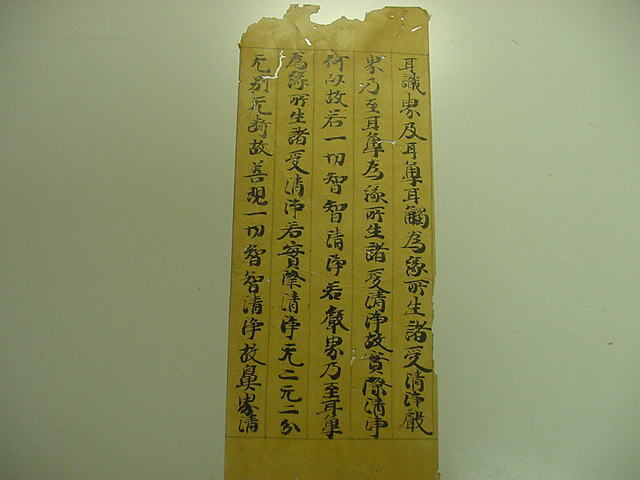 耳識界及耳觸耳觸為緣所生諸受清淨聲
界乃至耳觸為緣所生諸受清淨故實際清淨
何以故若一切智智清淨若聲界乃至耳觸
為緣所生諸受清淨若實際清淨无二无二分
无別无斷故善現一切智智清淨故鼻界清